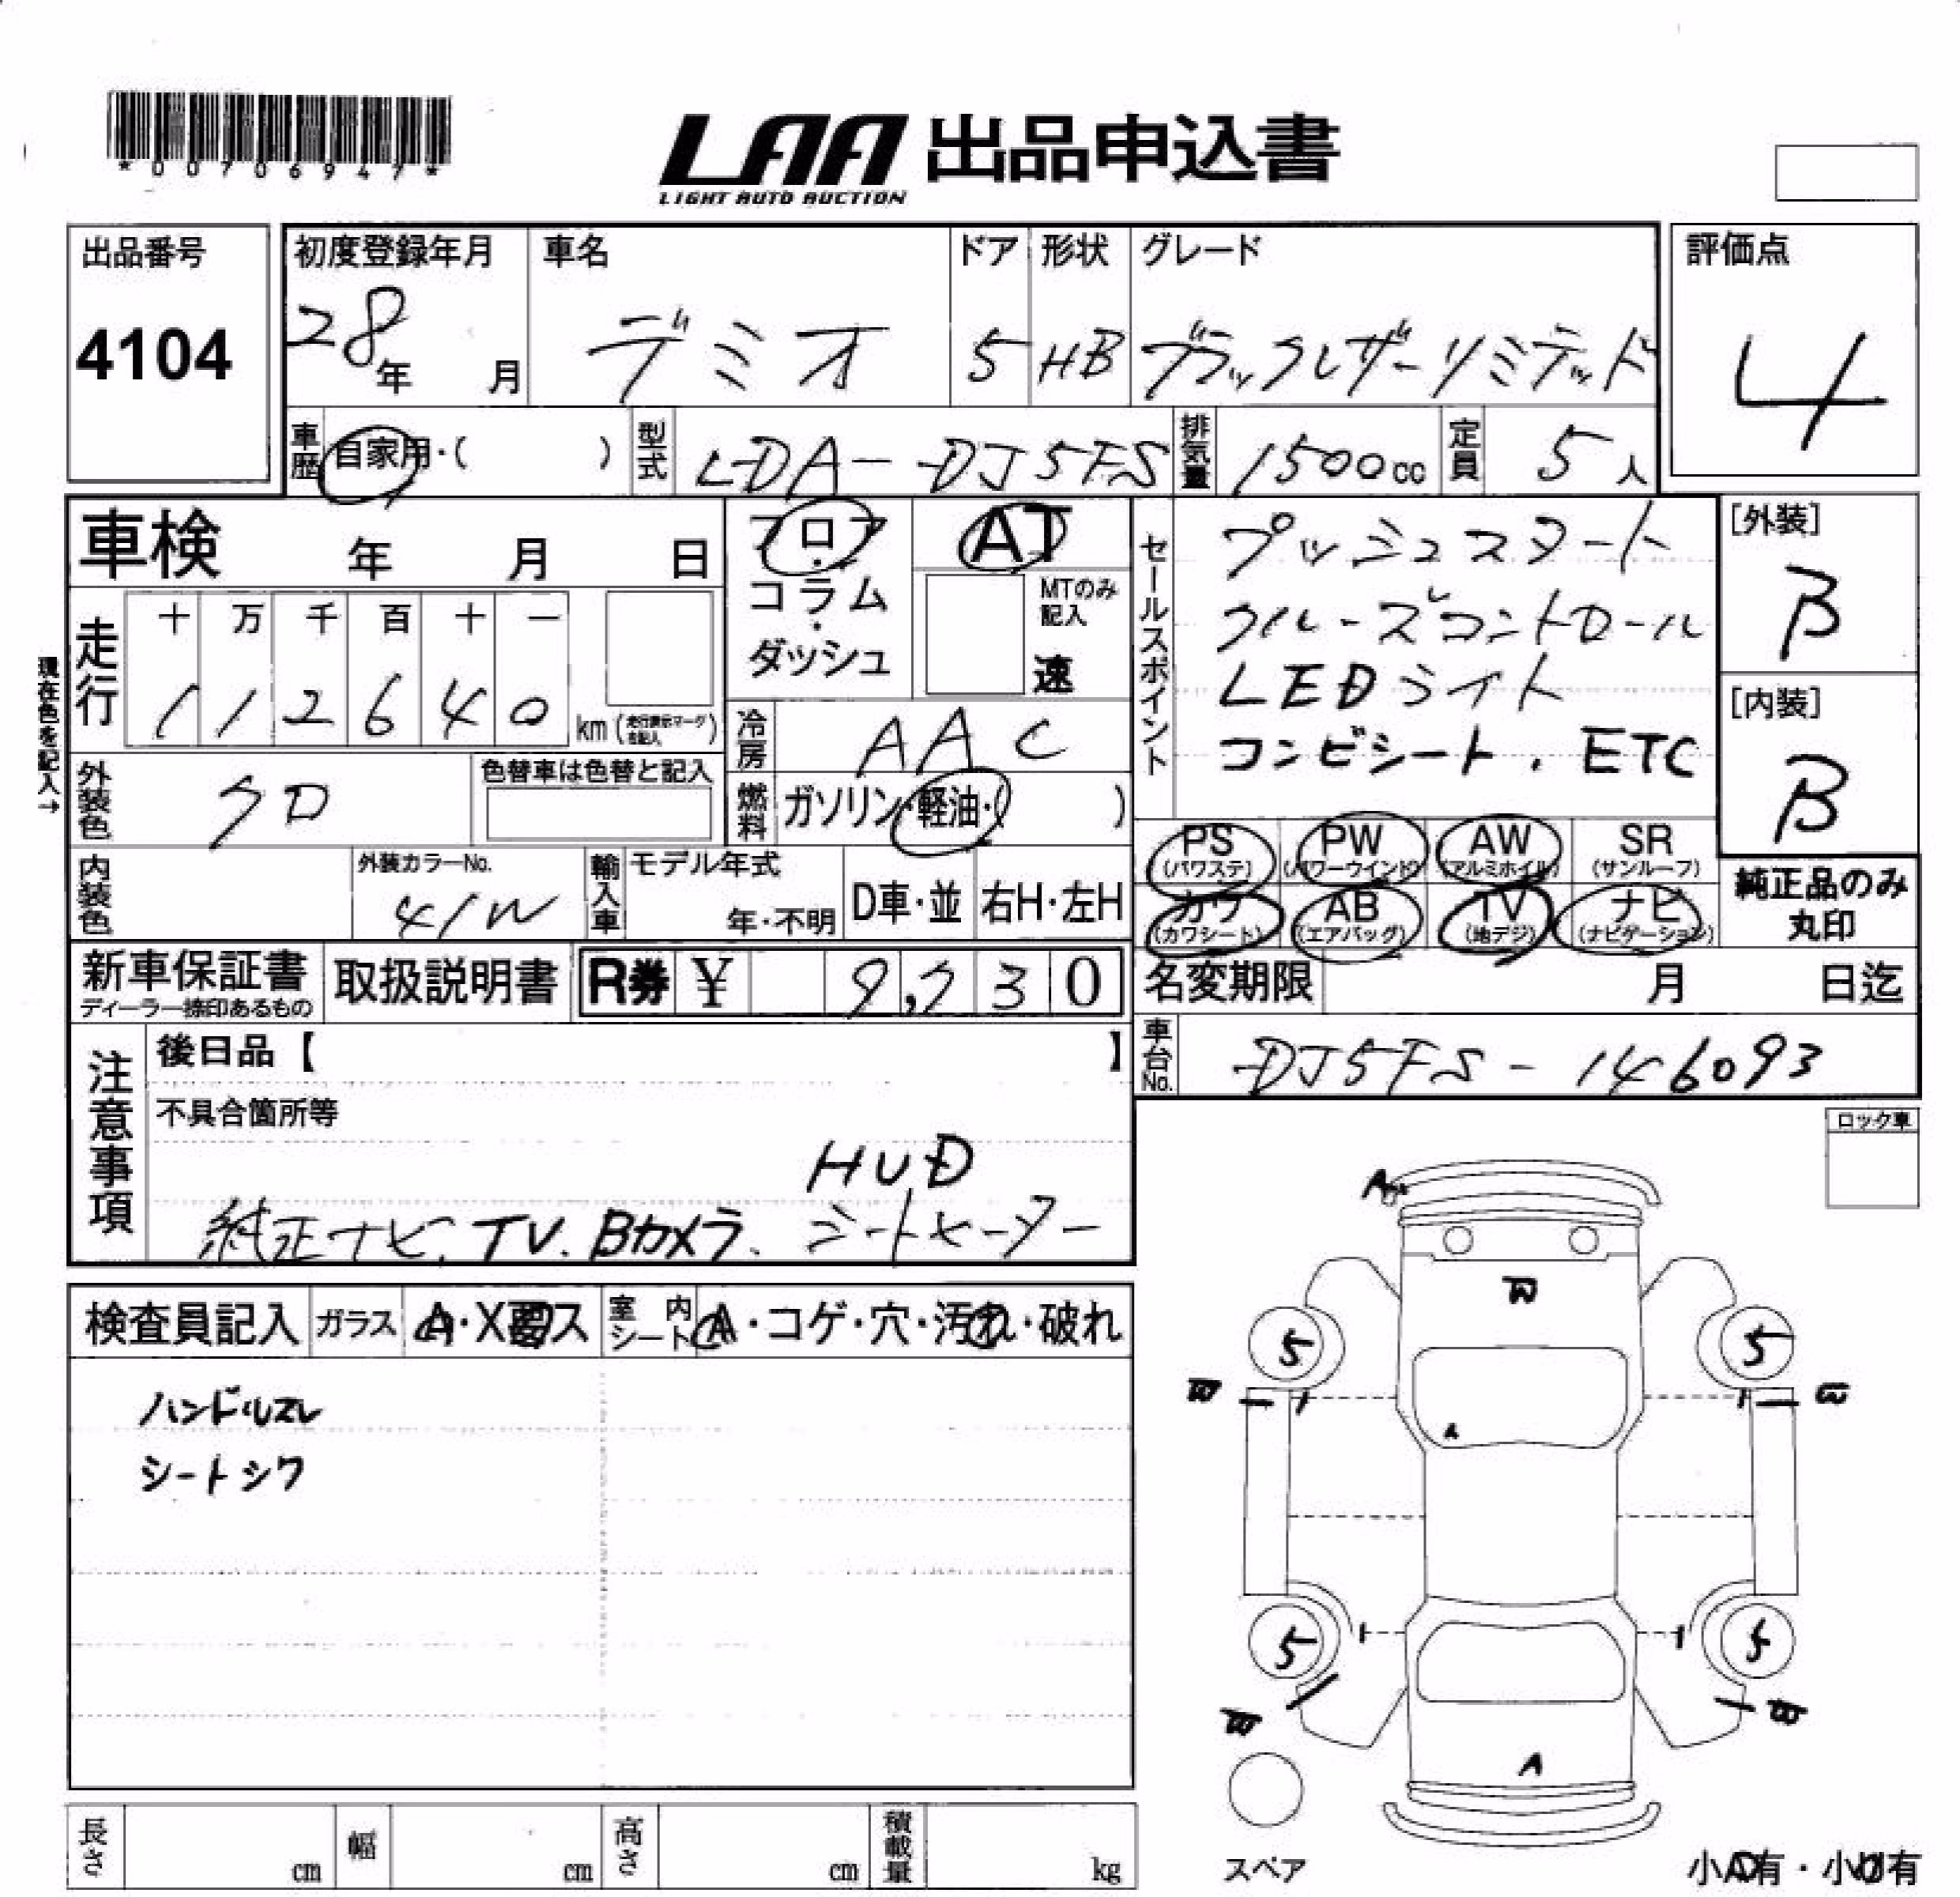 *00706947*
LAA 出品申込書
LIGHT AUTO AUCTION
出品番号
4104
初度登録年月
28年 月
車名
デミオ
ドア
5
形状
HB
グレード
ブラックレザーリミテッド
評価点
4
車歴
自家用・( )
型式
LDA-DJ5FS
排気量
1500cc
定員
5人
車検 年 月 日
フロア
・
コラム
・
ダッシュ
AT
MTのみ
記入
速
セールスポイント
プッシュスタート
クルーズコントロール
LEDライト
コンビシート、ETC
[外装]
B
[内装]
B
現在色を記入→
走行
十 万 千 百 十 一
1 1 2 6 4 0 km (走行表示マーク
を記入)
冷房
AAC
外装色
クロ
色替車は色替と記入
燃料
ガソリン・軽油・( )
PS
(パワステ)
PW
(パワーウインド)
AW
(アルミホイル)
SR
(サンルーフ)
カワ
(カワシート)
AB
(エアバッグ)
TV
(地デジ)
ナビ
(ナビゲーション)
純正品のみ
丸印
内装色
外装カラーNo.
41W
輸入車
モデル年式
年・不明
D車・並
右H・左H
新車保証書
ディーラー捺印あるもの
取扱説明書
R券 ¥ 9,730
名変期限 月 日迄
車台No.
DJ5FS-146093
注意事項
後日品【 】
不具合箇所等
HUD
純正ナビ、TV、Bカメラ、シートヒーター
ロック車
検査員記入
ガラス
A・X
ス
室内
シート
A・コゲ・穴・汚れ・破れ
ハンドルスレ
シートシワ
A
W
5
5
W
W
A
5
5
W
W
A
スペア
長さ
cm
幅
cm
高さ
cm
積載量
kg
小A有・小U有